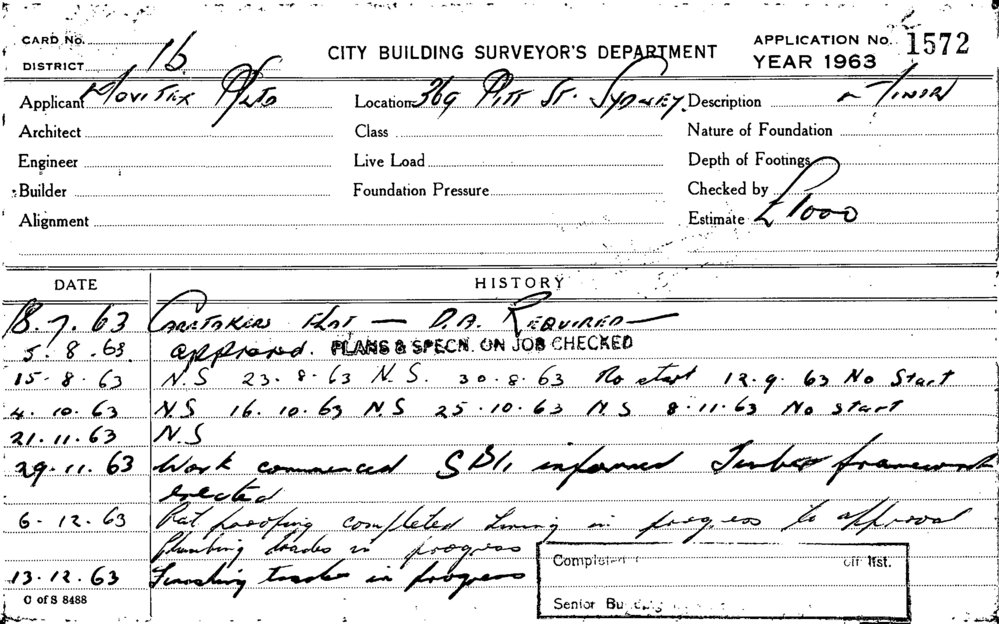 CARD No.
DISTRICT 16
CITY BUILDING SURVEYOR'S DEPARTMENT
APPLICATION No. 1572
YEAR 1963
Applicant
Location 369 PITT ST. SYDNEY.
Description MINOR
Architect
Class
Nature of Foundation
Engineer
Live Load
Depth of Footings
Builder
Foundation Pressure
Checked by
Alignment
Estimate £1000
DATE HISTORY
18.7.63 CARETAKERS FLAT — D.A. REQUIRED —
5.8.63 approved. PLANS & SPECN. ON JOB CHECKED
15.8.63 N.S 23.8.63 N.S. 30.8.63 No start 12.9.63 No Start
4.10.63 N.S 16.10.63 N.S 25.10.63 N.S 8.11.63 No start
21.11.63 N.S
29.11.63 Work commenced SBI, informed Timber framework
erected
6.12.63 Rat proofing completed Lining in progress to approval
Plumbing trades in progress
13.12.63 Finishing trades in progress
Completed off list.
Senior Building
C of S 8488